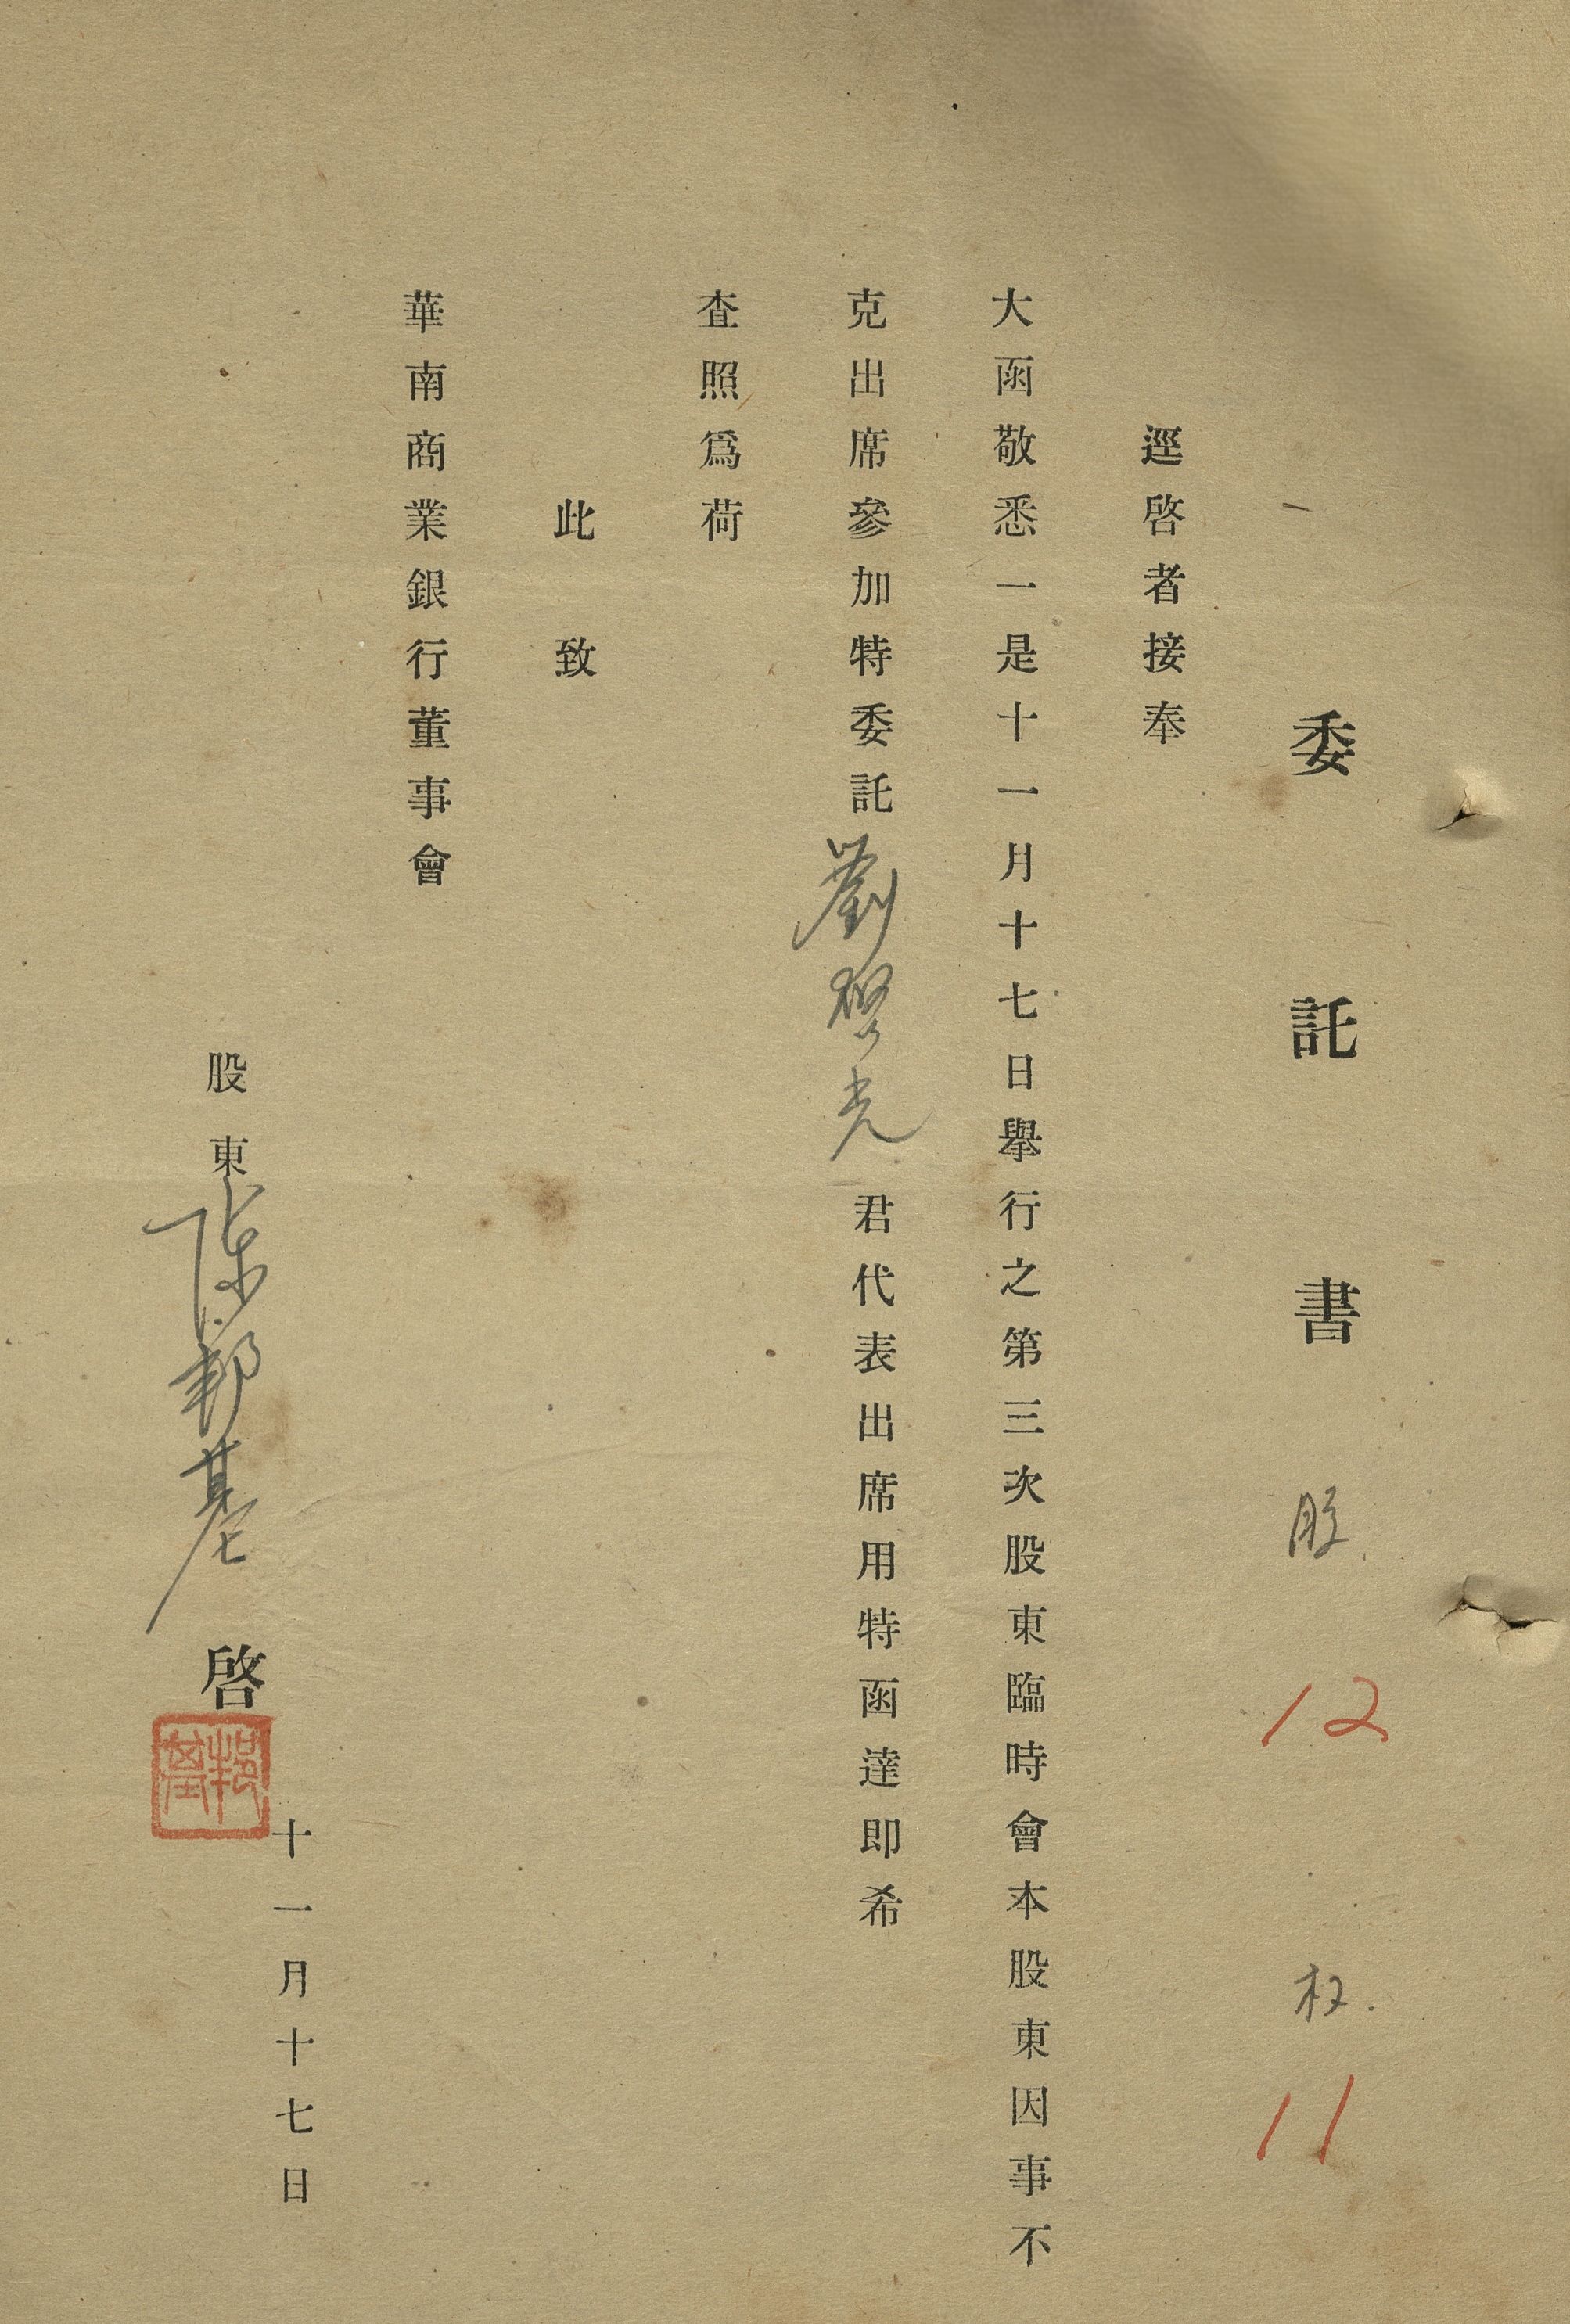 委託書 股 12 权 11
逕啓者接奉
大函敬悉一是十一月十七日舉行之第三次股東臨時會本股東因事不
克出席參加特委託劉啓光君代表出席用特函達即希
査照爲荷
此致
華南商業銀行董事會
十一月十七日
股東陳邦基啓
邦基